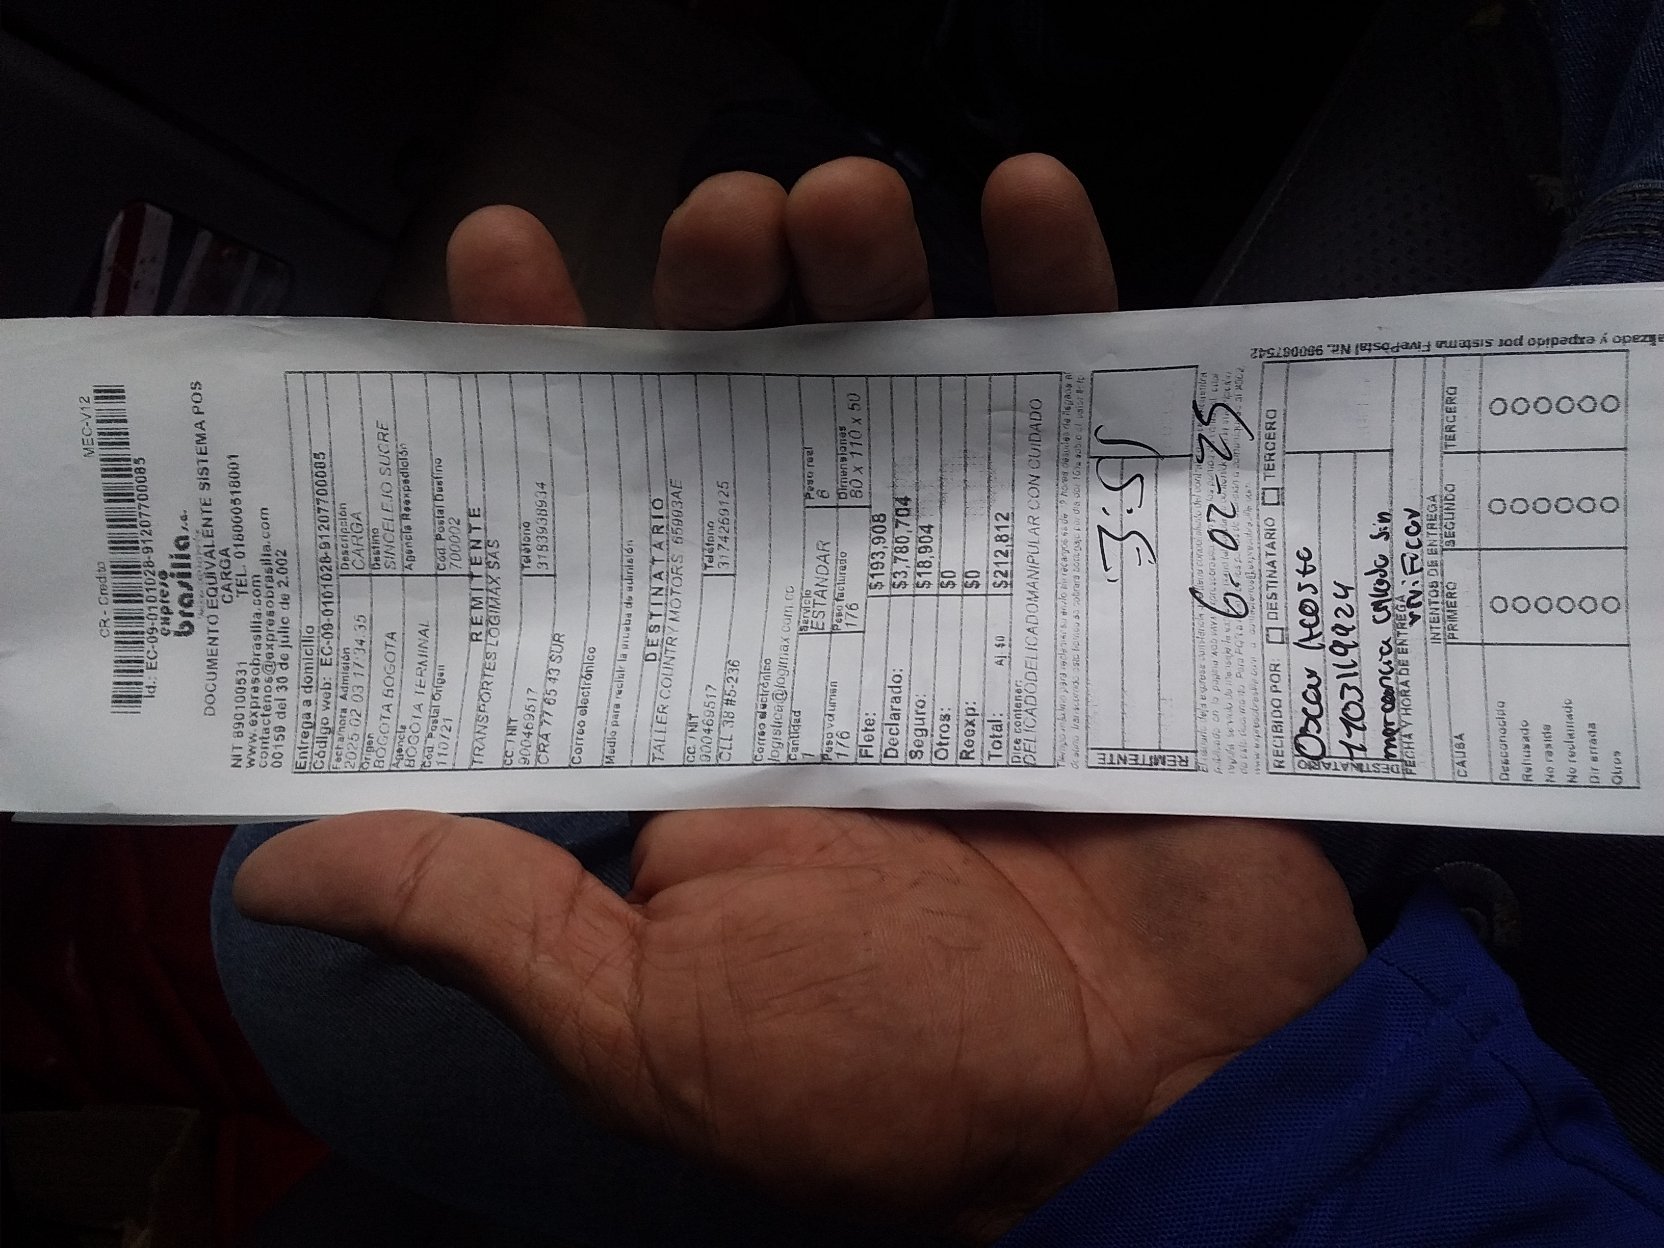 CR - Credito MEC-V12
Id.: EC-09-0101028-91207700085
expreso
brasilia s.a.
DOCUMENTO EQUIVALENTE SISTEMA POS
CARGA
NIT 890100531 TEL. 018000518001
www.expresobrasilia.com
contactenos@expresobrasilia.com
00159 del 30 de julio de 2.002
Entrega a domicilio
Código web: EC-09-0101028-91207700085
Fecha/hora Admisión Descripción
2025 02 03 17:34:35 CARGA
Origen Destino
BOGOTA BOGOTA SINCELEJO SUCRE
Agencia Agencia Reexpedición
BOGOTA TERMINAL
Cod Postal Origen Cod Postal Destino
110721 700002
REMITENTE
TRANSPORTES LOGIMAX SAS
CC. / NIT Teléfono
900469517 3183930934
CRA 77 65 43 SUR
Correo electrónico
Medio para recibir la prueba de admisión
DESTINATARIO
TALLER COUNTRY MOTORS 65993AE
CC. / NIT Teléfono
900469517 3174269125
CLL 38 #5-236
Correo electrónico
logistica@logimax.com.co
Cantidad Servicio Peso real
1 ESTANDAR 6
Peso volumen Peso facturado Dimensiones
176 176 80 x 110 x 50
Flete: $193,908
Declarado: $3,780,704
Seguro: $18,904
Otros: $0
Reexp: $0
Total: Aj. $0 $212,812
Dice contener:
DELICADODELICADOMANIPULAR CON CUIDADO
3:51
6-02-25
RECIBIDO POR: DESTINATARIO TERCERO
Oscar Acosta
1103119924
mercancia calado sin
verificar
FECHA Y HORA DE ENTREGA
INTENTOS DE ENTREGA
CAUSA PRIMERO SEGUNDO TERCERO
Desconocido
Rehusado
No reside
No reclamado
Dir errada
Otros
expedido por sistema FivePostal Nit. 900087542